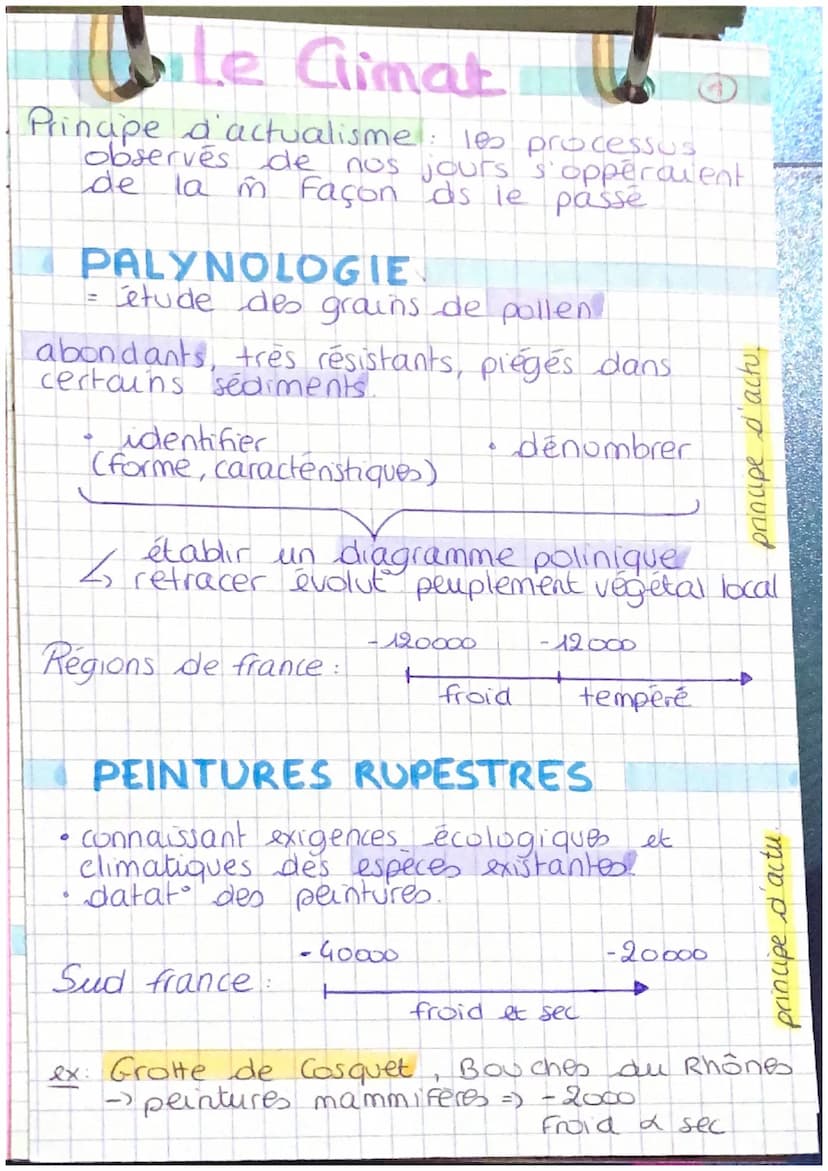 Le Climat
1
Principe d'actualisme : les processus
observés de nos jours s'oppéraient
de la m̂ façon ds le passé
PALYNOLOGIE
= étude des grains de pollen
abondants, très résistants, piégés dans
certains sédiments.
• identifier • dénombrer
(forme, caractéristiques)
principe d'actu.
établir un diagramme polinique
↳ retracer évolut° peuplement végétal local
-120000 -12000
Régions de france :
froid tempéré
PEINTURES RUPESTRES
• connaissant exigences écologiques et
climatiques des espèces existantes.
• datat° des peintures.
principe d'actu.
-40000 -20000
Sud france :
froid et sec
ex: Grotte de Cosquet, Bouches du Rhônes
-> peintures mammifères => -2000
froid & sec